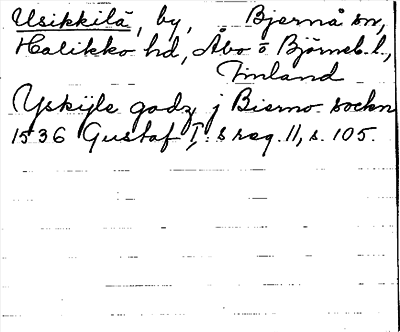 Usikkilä, by, Bjernå sn,
Halikko hd, Åbo o Björneb. l.,
Finland
Yskijle godz j Bierno sockn
1536 Gustaf I:s reg. 11, s. 105.